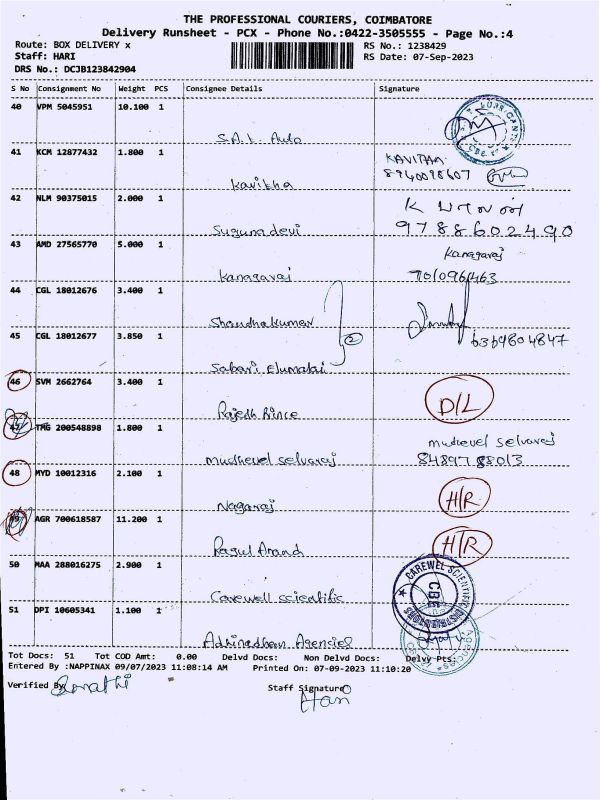 THE PROFESSIONAL COURIERS, COIMBATORE
Delivery Runsheet - PCX - Phone No.:0422-3505555 - Page No.:4
Route: BOX DELIVERY x
RS No.: 1238429
Staff: HARI
RS Date: 07-Sep-2023
DRS No.: DCJB123842904
S No Consignment No Weight PCS Consignee Details Signature
40 VPM 5045951 10.100 1
S.A.L. Auto
41 KCM 12877432 1.800 1 KAVITHA
Kavitha 8940098607
42 NLM 90375015 2.000 1 K
Sugunadevi 9788602490
43 AMD 27565770 5.000 1 Kanagaraj
Kanagaraj 7010961463
44 CGL 18012676 3.400 1
Shandhakumar
45 CGL 18012677 3.850 1 6369804847
2
Sabari Elumalai
46 SVM 2662764 3.400 1 D/L
Rajesh Prince
47 TMG 200548898 1.800 1 muthevel selvaraj
muthevel selvaraj 84897 88013
48 MYD 10012316 2.100 1 H/R
Nagaraj
49 AGR 700618587 11.200 1 H/R
Ragul Anand
50 MAA 288016275 2.900 1 CAREWEL SCIENTIFIC
CBE
Carewell scientific
51 DPI 10605341 1.100 1
Adhinadham Agencies
Tot Docs: 51 Tot COD Amt: 0.00 Delvd Docs: Non Delvd Docs: Delvy Pts:
Entered By :NAPPINAX 09/07/2023 11:08:14 AM Printed On: 07-09-2023 11:10:20
Verified By
Staff Signature
Hari